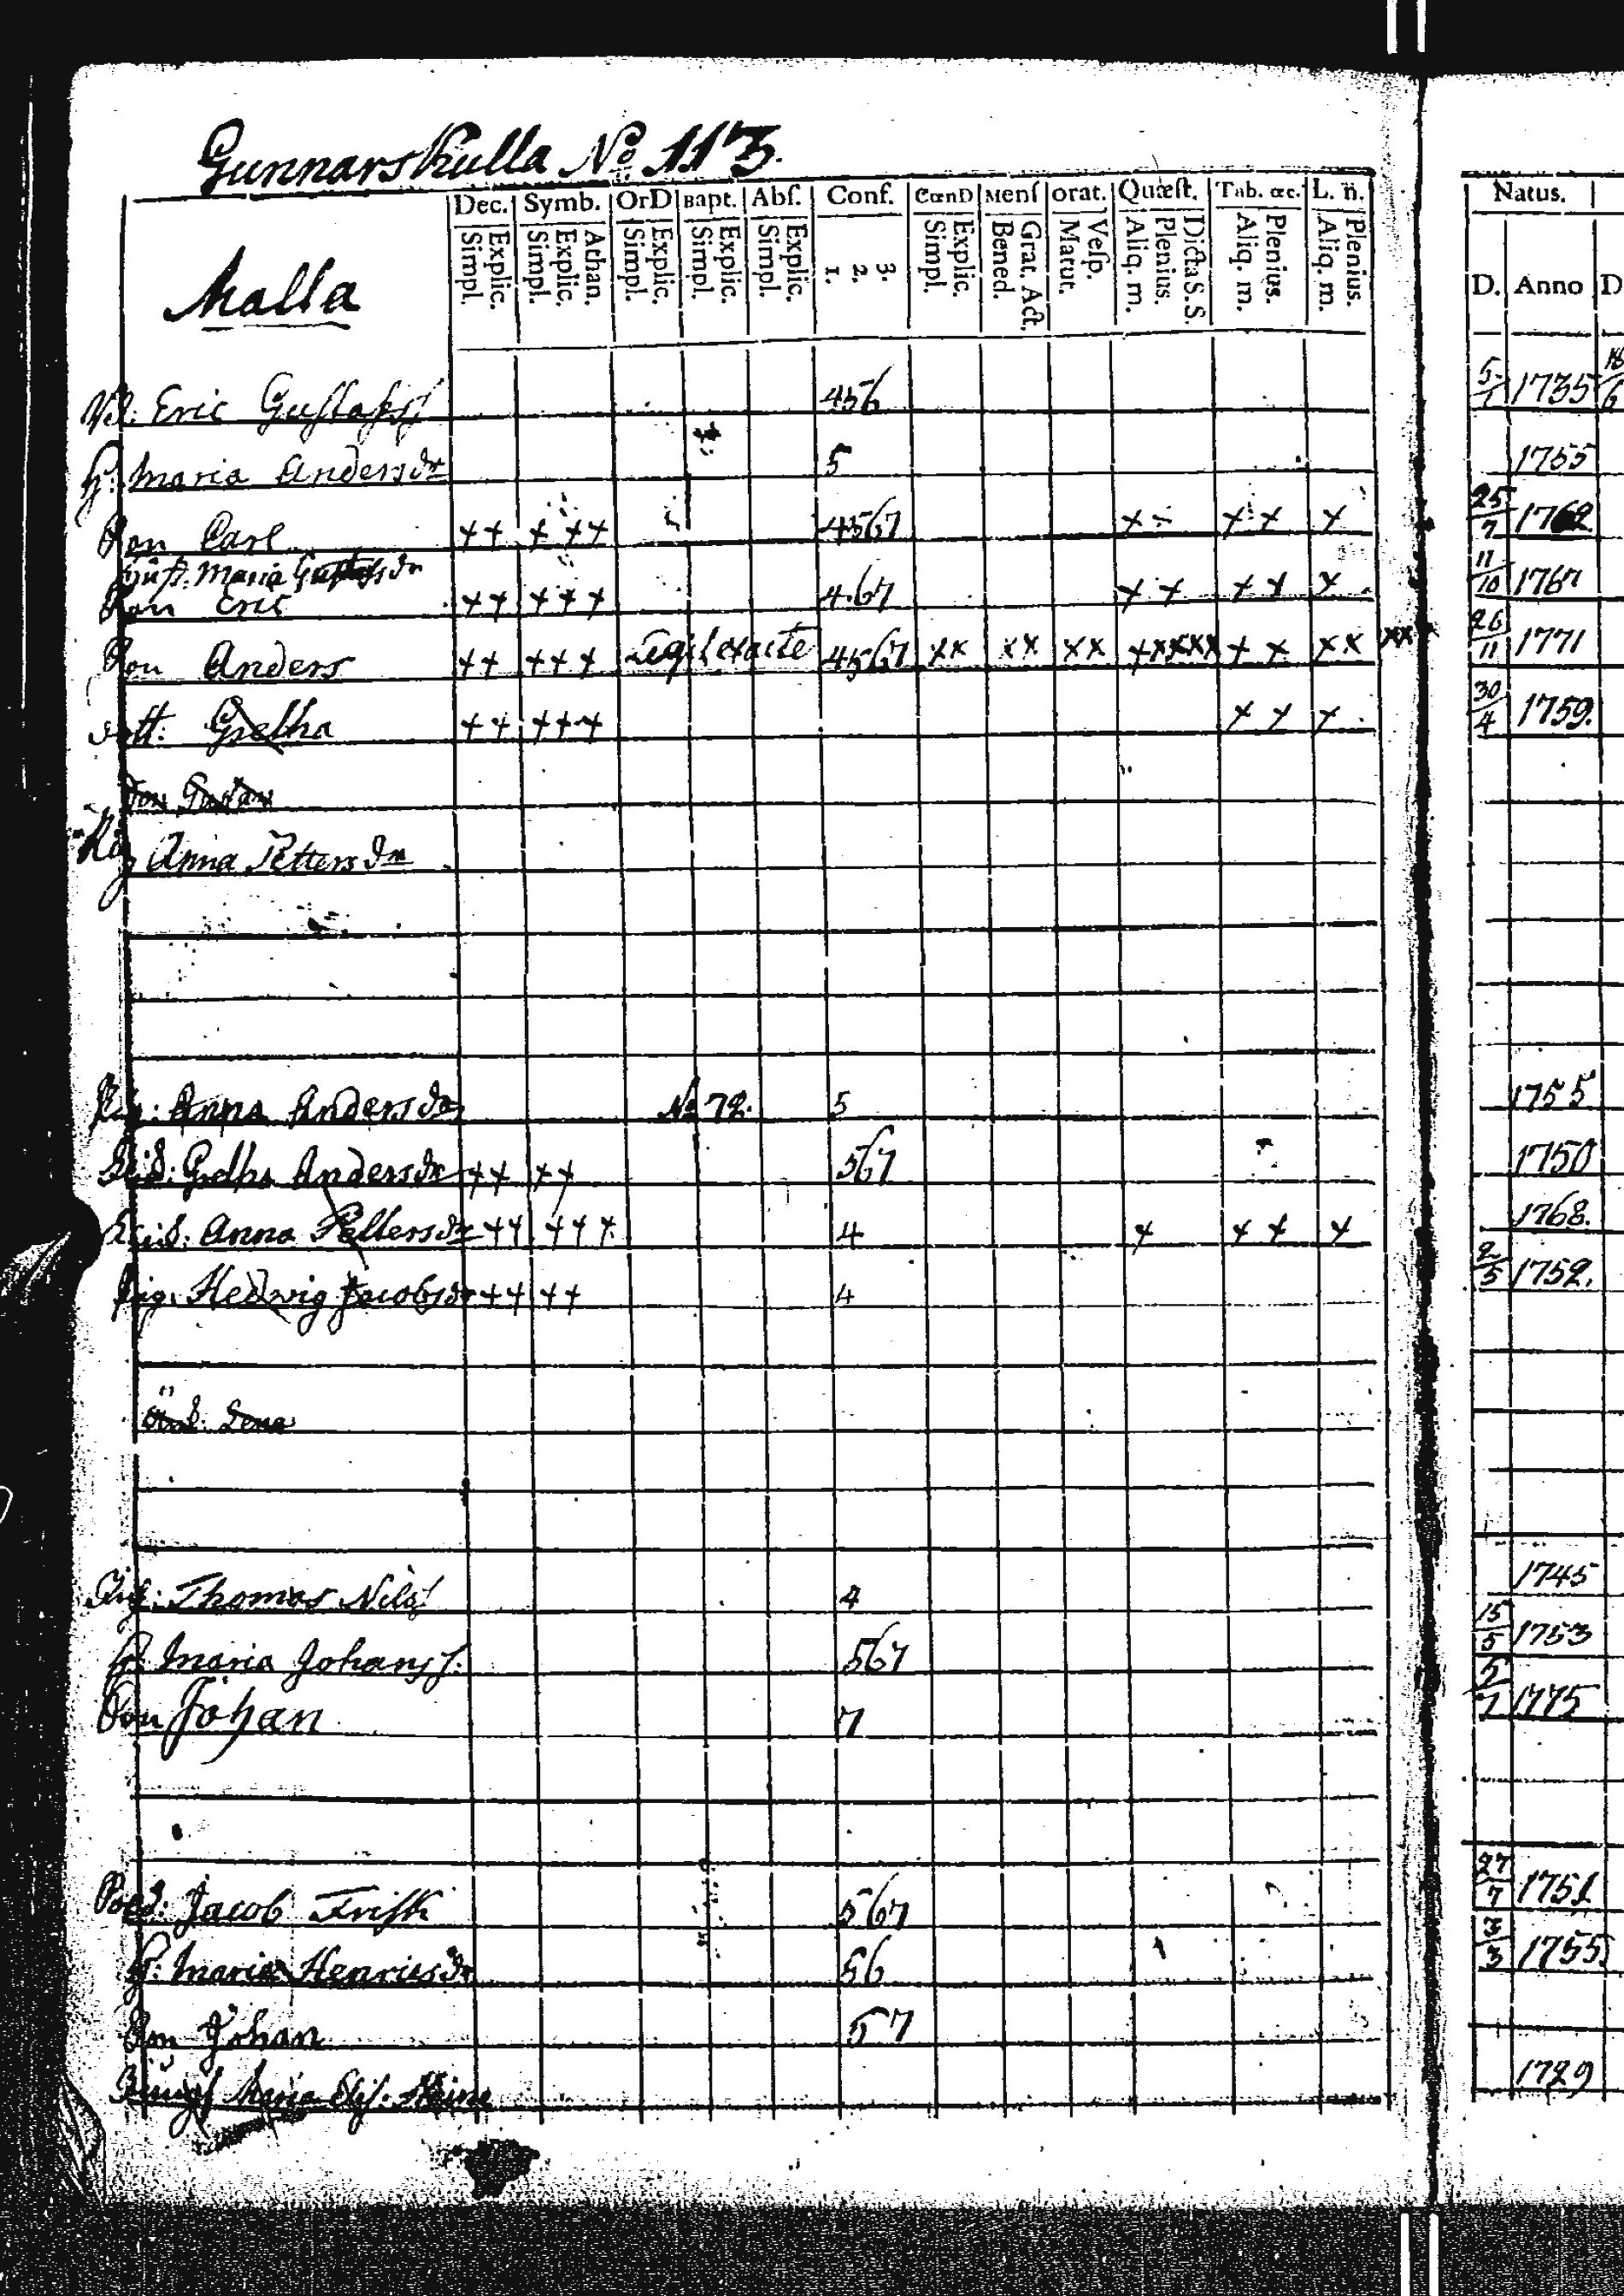 Gunnarskulla No 113.
Malla
Dec. Symb. OrD Bapt. Abſ. Conf. CœnD Menſ orat. Quæſt. Tab. œc. L. n̈. Natus.
Explic. Simpl. Athan. Explic. Simpl. Explic. Simpl. Explic. Simpl. Explic. Simpl. 3. 2. 1. Explic. Simpl. Grat. Act. Bened. Veſp. Matut. Dicta S. S. Plenius. Aliq. m. Plenius. Aliq. m. Plenius. Aliq. m. D. Anno D
Eric Gustafss 456 5/1 1735 18/6
H: Maria Andersdr 5 1755
Son Carl ++ + ++ 4567 + ++ + 25/7 1762
Maria Gustafsdr
Son Eric ++ +++ 4.67 + + + + + 11/10 1767
Son Anders ++ +++ Legit exacte 4567 xx xx xx +xxxxx + x xx xx 26/11 1771
dott: Gretha ++ +++ + + + 30/4 1759.
Son Gustav
Anna Pettersdr
Anna Andersdr No 72. 5 1755
Gretha Andersdr ++ ++ 567 1750
Anna Pettersdr ++ +++ 4 + + + + 1768.
Pig. Hedwig Jacobsdr ++ ++ 4 2/5 1752.
Lena
Thomas Nilss 4 1745
H. Maria Johanss. 567 15/5 1753
Son Johan 7 5/7 1775
Jacob Frisk 567 27/7 1751
H: Maria Henricsdr 56 3/3 1755.
Son Johan 57
Maria 1729